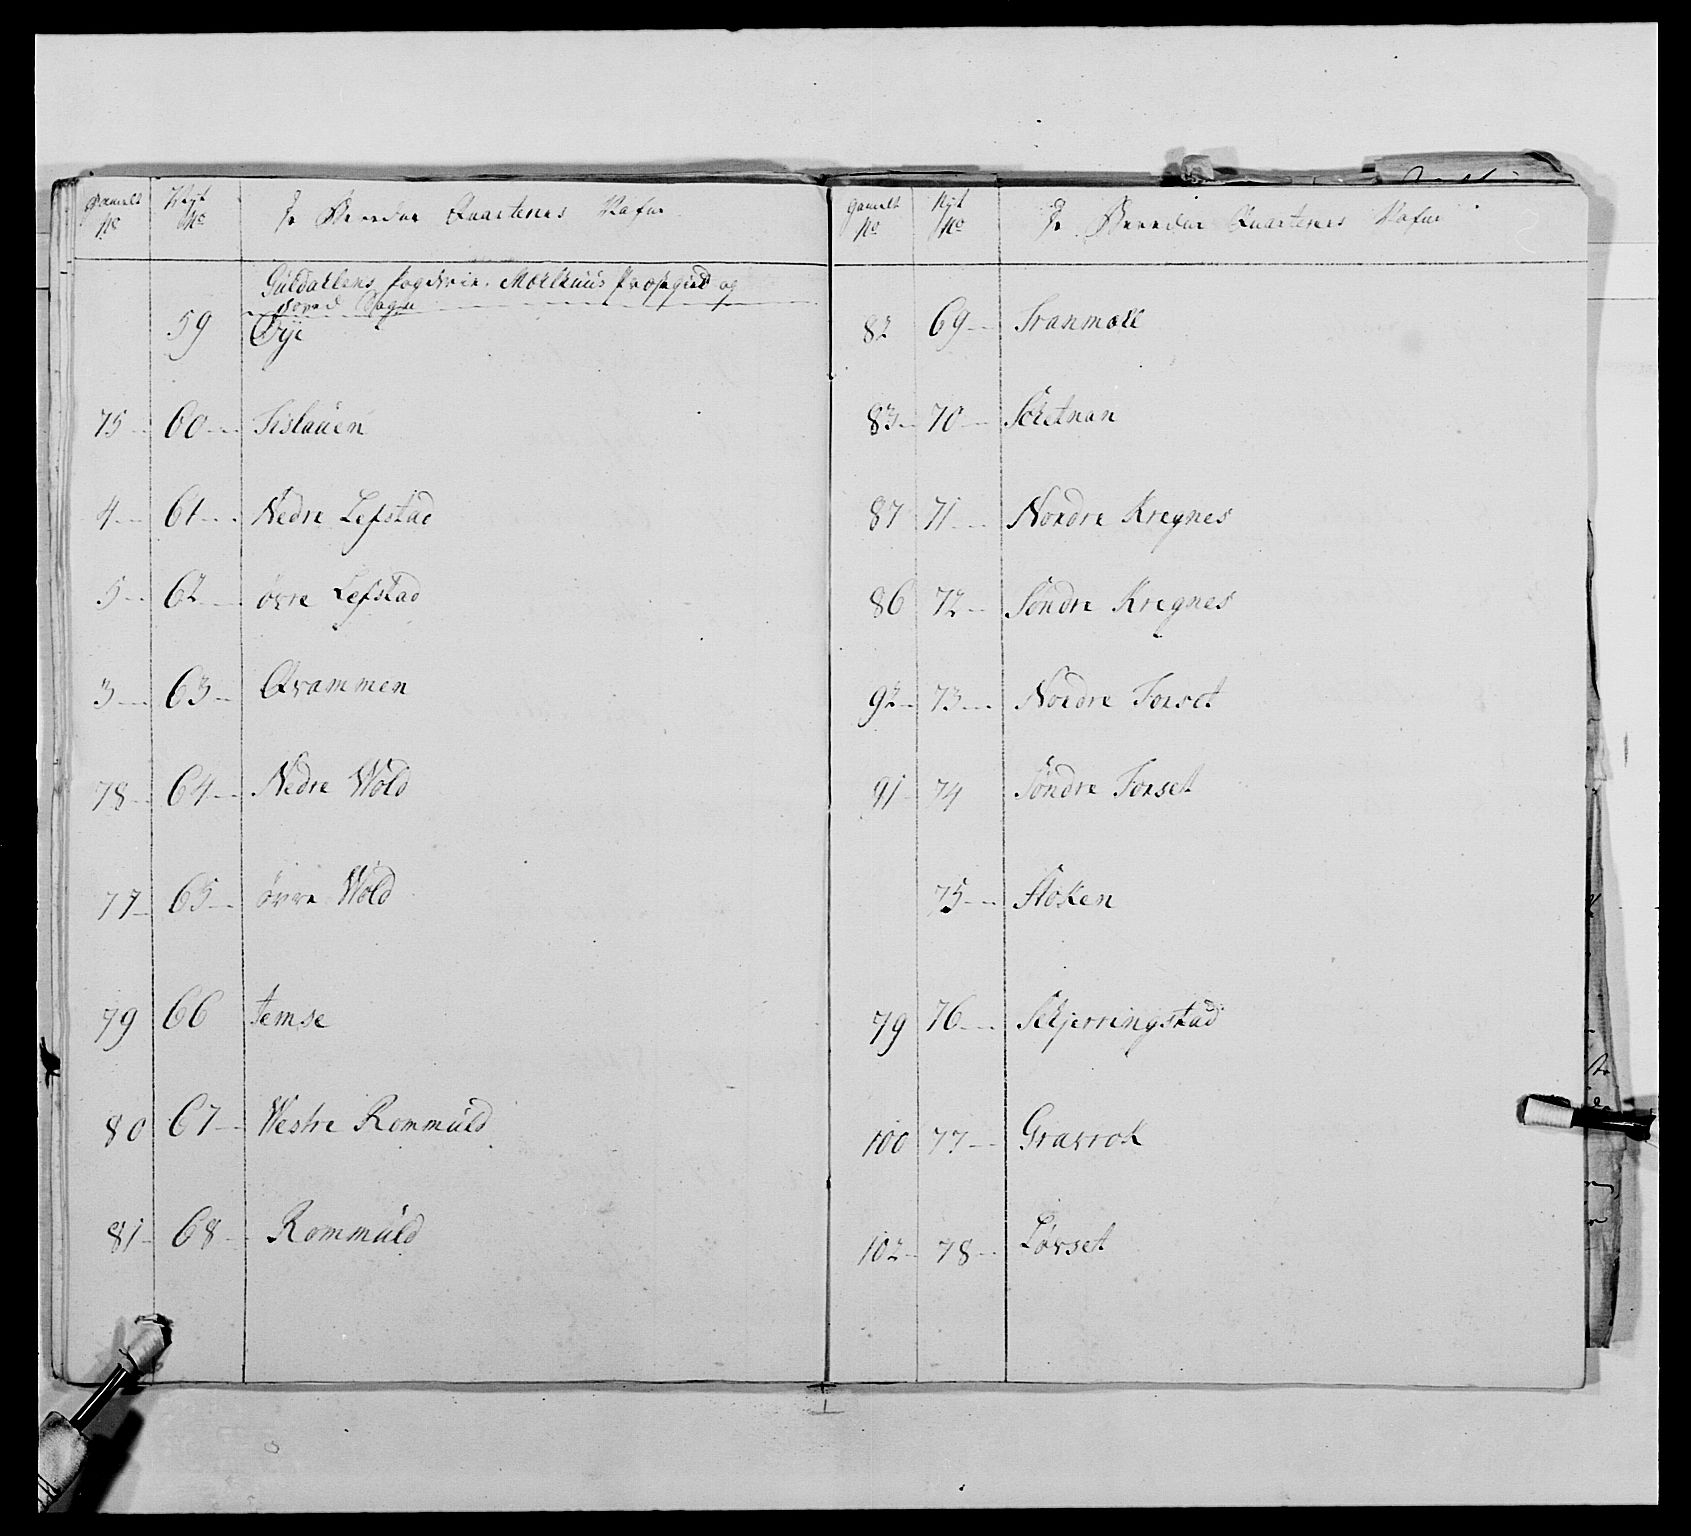 Gamelt No Nyt No Qvarterers Nafne
Guldallens fogderie. Moelhuus Præstgield og
Sogn
59 Øye
75 60 Fislauen
4 61 Nedre Lefstad
5 62 øvre Lefstad
3 63 Qvammen
78 64 Nedre Wold
77 65 øvre Wold
79 66 Jemse
80 67 Westre Rommuld
81 68 Rommuld
Gamelt No Nyt No Qvarterers Nafne
82 69 Tranmæll
83 70
87 71 Nordre Kregnes
86 72 Søndre Kregnes
92 73 Nordre Forset
91 74 Søndre Forset
75 Floken
79 76 Skjerringstad
100 77 Gravrok
102 78 Løvset